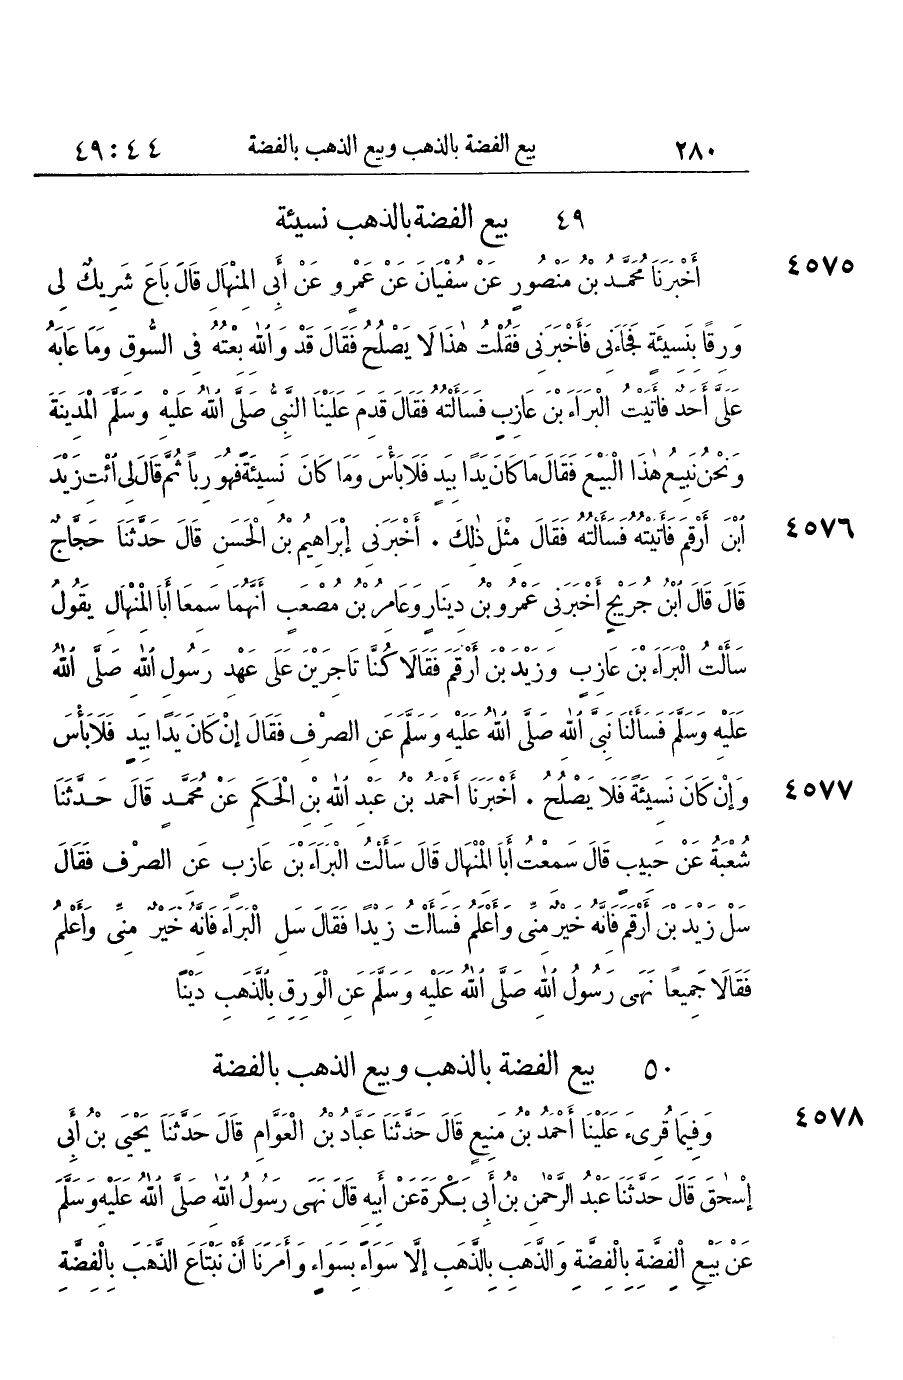 ٢٨٠ بيع الفضة بالذهب وبيع الذهب بالفضة ٤٩:٤٤
٤٩ بيع الفضة بالذهب نسيئة
٤٥٧٥ أَخْبَرَنَا مُحَمَّدُ بْنُ مَنْصُورٍ عَنْ سُفْيَانَ عَنْ عَمْرٍو عَنْ أَبِي الْمِنْهَالِ قَالَ بَاعَ شَرِيكٌ لِي
وَرِقًا بِنَسِيئَةٍ فَجَاءَنِي فَأَخْبَرَنِي فَقُلْتُ هٰذَا لَا يَصْلُحُ فَقَالَ قَدْ وَاللّٰهِ بِعْتُهُ فِي السُّوقِ وَمَا عَابَهُ
عَلَيَّ أَحَدٌ فَأَتَيْتُ الْبَرَاءَ بْنَ عَازِبٍ فَسَأَلْتُهُ فَقَالَ قَدِمَ عَلَيْنَا النَّبِيُّ صَلَّى اللّٰهُ عَلَيْهِ وَسَلَّمَ الْمَدِينَةَ
وَنَحْنُ نَبِيعُ هٰذَا الْبَيْعَ فَقَالَ مَا كَانَ يَدًا بِيَدٍ فَلَا بَأْسَ وَمَا كَانَ نَسِيئَةً فَهُوَ رِبًا ثُمَّ قَالَ لِي ائْتِ زَيْدَ
٤٥٧٦ ابْنَ أَرْقَمَ فَأَتَيْتُهُ فَسَأَلْتُهُ فَقَالَ مِثْلَ ذٰلِكَ . أَخْبَرَنِي إِبْرَاهِيمُ بْنُ الْحَسَنِ قَالَ حَدَّثَنَا حَجَّاجٌ
قَالَ قَالَ ابْنُ جُرَيْجٍ أَخْبَرَنِي عَمْرُو بْنُ دِينَارٍ وَعَامِرُ بْنُ مُصْعَبٍ أَنَّهُمَا سَمِعَا أَبَا الْمِنْهَالِ يَقُولُ
سَأَلْتُ الْبَرَاءَ بْنَ عَازِبٍ وَزَيْدَ بْنَ أَرْقَمَ فَقَالَا كُنَّا تَاجِرَيْنِ عَلَى عَهْدِ رَسُولِ اللّٰهِ صَلَّى اللّٰهُ
عَلَيْهِ وَسَلَّمَ فَسَأَلْنَا نَبِيَّ اللّٰهِ صَلَّى اللّٰهُ عَلَيْهِ وَسَلَّمَ عَنِ الصَّرْفِ فَقَالَ إِنْ كَانَ يَدًا بِيَدٍ فَلَا بَأْسَ
٤٥٧٧ وَإِنْ كَانَ نَسِيئَةً فَلَا يَصْلُحُ . أَخْبَرَنَا أَحْمَدُ بْنُ عَبْدِ اللّٰهِ بْنِ الْحَكَمِ عَنْ مُحَمَّدٍ قَالَ حَدَّثَنَا
شُعْبَةُ عَنْ حَبِيبٍ قَالَ سَمِعْتُ أَبَا الْمِنْهَالِ قَالَ سَأَلْتُ الْبَرَاءَ بْنَ عَازِبٍ عَنِ الصَّرْفِ فَقَالَ
سَلْ زَيْدَ بْنَ أَرْقَمَ فَإِنَّهُ خَيْرٌ مِنِّي وَأَعْلَمُ فَسَأَلْتُ زَيْدًا فَقَالَ سَلِ الْبَرَاءَ فَإِنَّهُ خَيْرٌ مِنِّي وَأَعْلَمُ
فَقَالَا جَمِيعًا نَهَى رَسُولُ اللّٰهِ صَلَّى اللّٰهُ عَلَيْهِ وَسَلَّمَ عَنِ الْوَرِقِ بِالذَّهَبِ دَيْنًا
٥٠ بيع الفضة بالذهب وبيع الذهب بالفضة
٤٥٧٨ وَفِيمَا قُرِىءَ عَلَيْنَا أَحْمَدُ بْنُ مَنِيعٍ قَالَ حَدَّثَنَا عَبَّادُ بْنُ الْعَوَّامِ قَالَ حَدَّثَنَا يَحْيَى بْنُ أَبِي
إِسْحٰقَ قَالَ حَدَّثَنَا عَبْدُ الرَّحْمٰنِ بْنُ أَبِي بَكْرَةَ عَنْ أَبِيهِ قَالَ نَهَى رَسُولُ اللّٰهِ صَلَّى اللّٰهُ عَلَيْهِ وَسَلَّمَ
عَنْ بَيْعِ الْفِضَّةِ بِالْفِضَّةِ وَالذَّهَبِ بِالذَّهَبِ إِلَّا سَوَاءً بِسَوَاءٍ وَأَمَرَنَا أَنْ نَبْتَاعَ الذَّهَبَ بِالْفِضَّةِ